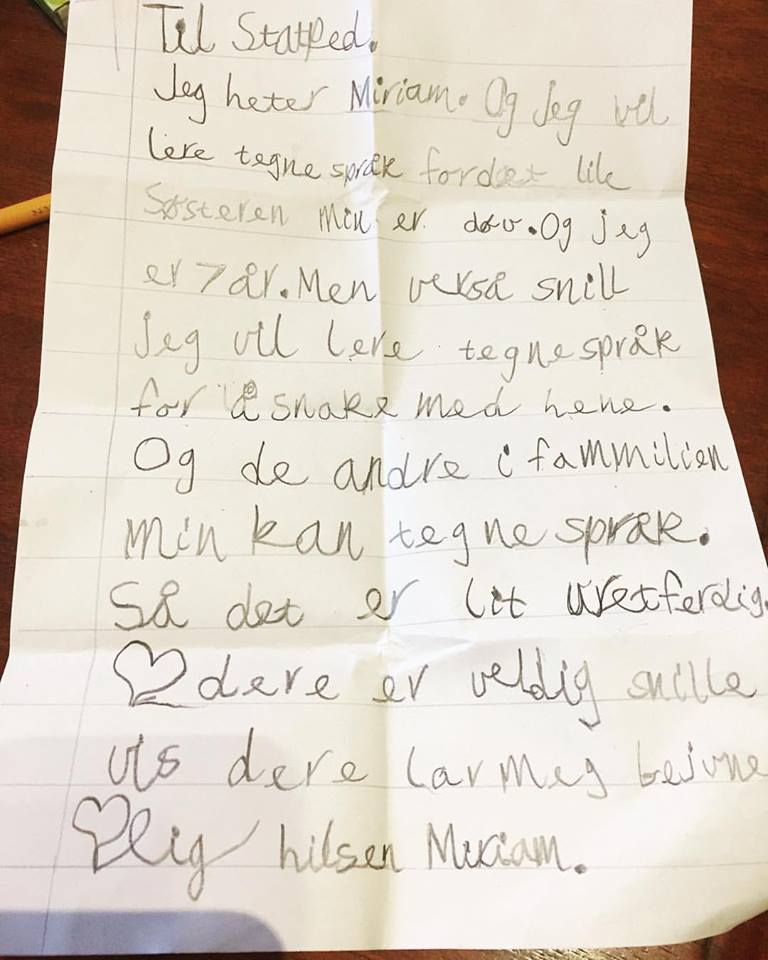 Til StatPed.
Jeg heter Miriam. Og Jeg vil
lere tegne språk fordet lile
Søsteren min er døv. Og jeg
er 7 år. Men verså snill
jeg vil lere tegnespråk
for å snake med hene.
Og de andre i fammilien
min kan tegne språk.
Så det er lit uretferdig.
♡ dere er veldig snille
vis dere lar meg bejyne
♡lig hilsen Miriam.